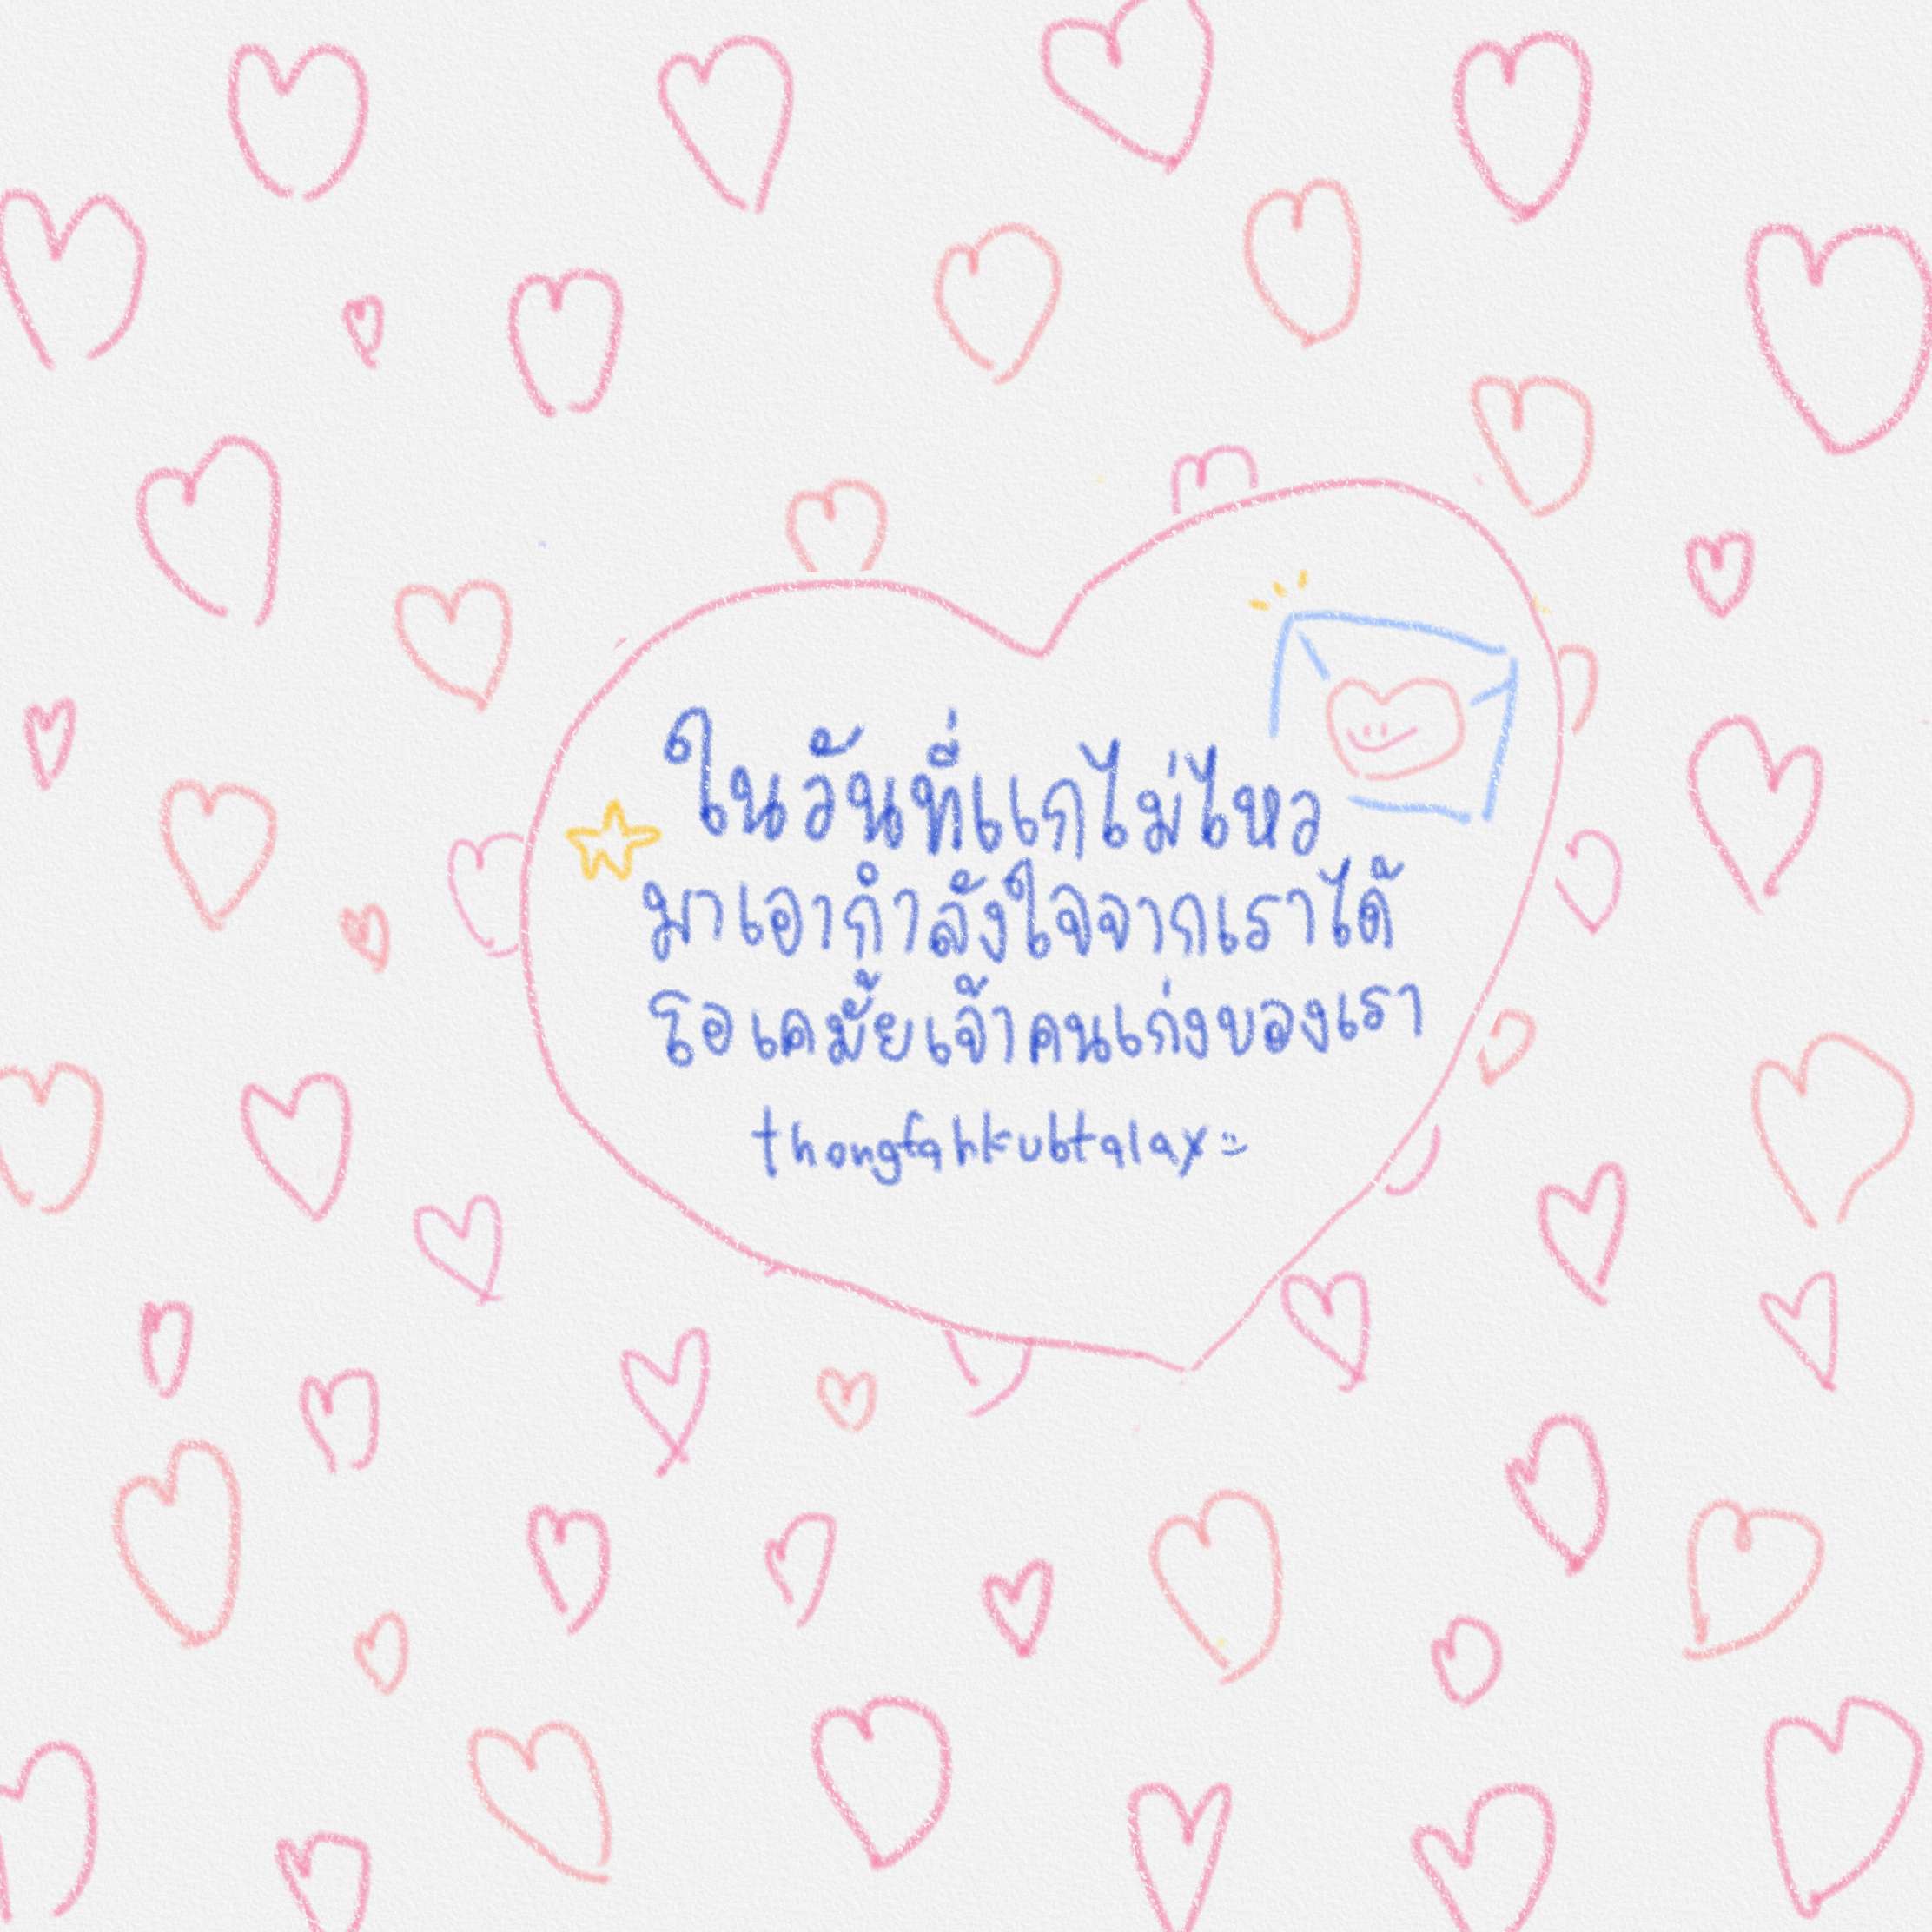 ในวันที่แกไม่ไหว
มาเอากำลังใจจากเราได้
โอเคมั้ยเจ้าคนเก่งของเรา
thongfahkubtalay